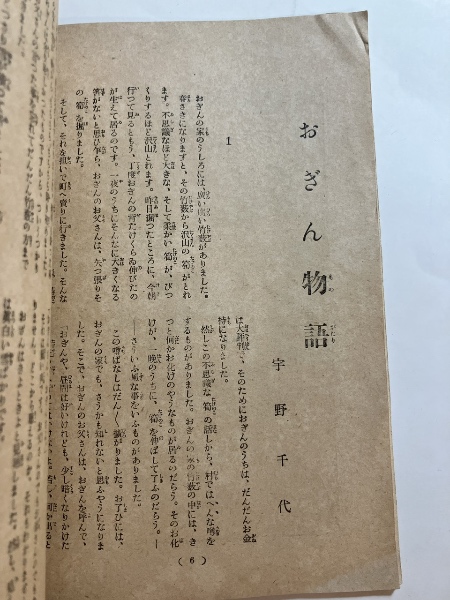 おぎん物語
宇野千代
1
おぎんの家のうしろには、廣い廣い竹藪がありました。
春さきになりますと、その竹藪から沢山の筍がとれ
ます。不思議なほど大きな、そして柔かい筍が、びつ
くりするほど沢山とれます。昨日掘つたところに、今朝
行つて見るともう、丁度おぎんの背たけくらゐ伸びたの
が生えて居るのです。一夜のうちにそんなに大きくなる
筈がないと思ひ乍ら、おぎんのお父さんは、矢つ張りそ
の筍を掘りました。
そして、それを担いで町へ賣りに行きました。そんな
は大評判で、そのためにおぎんのうちは、だんだんお金
持になりました。
然しこの不思議な筍の話しから、村ではへんな噂を
するものがありました。おぎんの家の竹藪の中には、き
つと何かお化けのやうなものが居るのだらう。そのお化
けが、晩のうちに、筍を伸ばして了ふのだらう。――
――さういふ風な事をいふものがありました。
この噂ばなしはだん〳〵擴がりました。お了ひには、
おぎんの家でも、さうかも知れないと思ふやうになりま
した。そこで、おぎんのお父さんは、おぎんを呼んで、
「おぎんや、晝間は好いけれども、少し暗くなりかけた
(6)